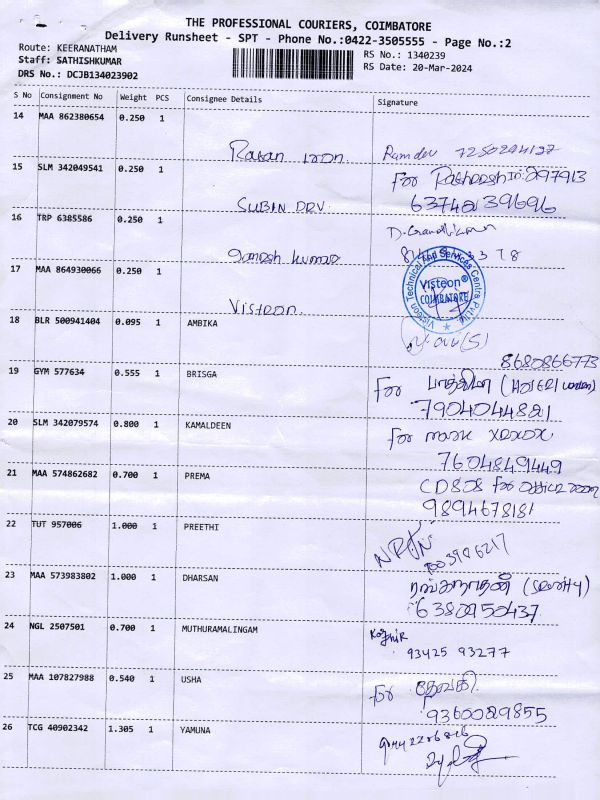 THE PROFESSIONAL COURIERS, COIMBATORE
Delivery Runsheet - SPT - Phone No.:0422-3505555 - Page No.:2
Route: KEERANATHAM
RS No.: 1340239
Staff: SATHISHKUMAR
RS Date: 20-Mar-2024
DRS No.: DCJB134023902
S No Consignment No Weight PCS Consignee Details Signature
14 MAA 862380654 0.250 1
Ratan iron. Ramdev 7250294127
15 SLM 342049541 0.250 1
For
SUBIN DRV. 63742139696
16 TRP 6385586 0.250 1
Ganesh kumar
17 MAA 864930066 0.250 1
Visteon Technical And Services Centre Pvt Ltd
Visteon®
COIMBATORE
Visteon.
18 BLR 500941404 0.095 1 AMBIKA
8680866773
19 GYM 577634 0.555 1 BRISGA
For
7904044821
20 SLM 342079574 0.800 1 KAMALDEEN
For mark xerox
7604849449
21 MAA 574862682 0.700 1 PREMA
CD808 For office room
9894678181
22 TUT 957006 1.000 1 PREETHI
23 MAA 573983802 1.000 1 DHARSAN
ரங்கநாதன் (security)
6380950437
24 NGL 2507501 0.700 1 MUTHURAMALINGAM
93425 93277
25 MAA 107827988 0.540 1 USHA
For தேவகி
9360029855
26 TCG 40902342 1.305 1 YAMUNA